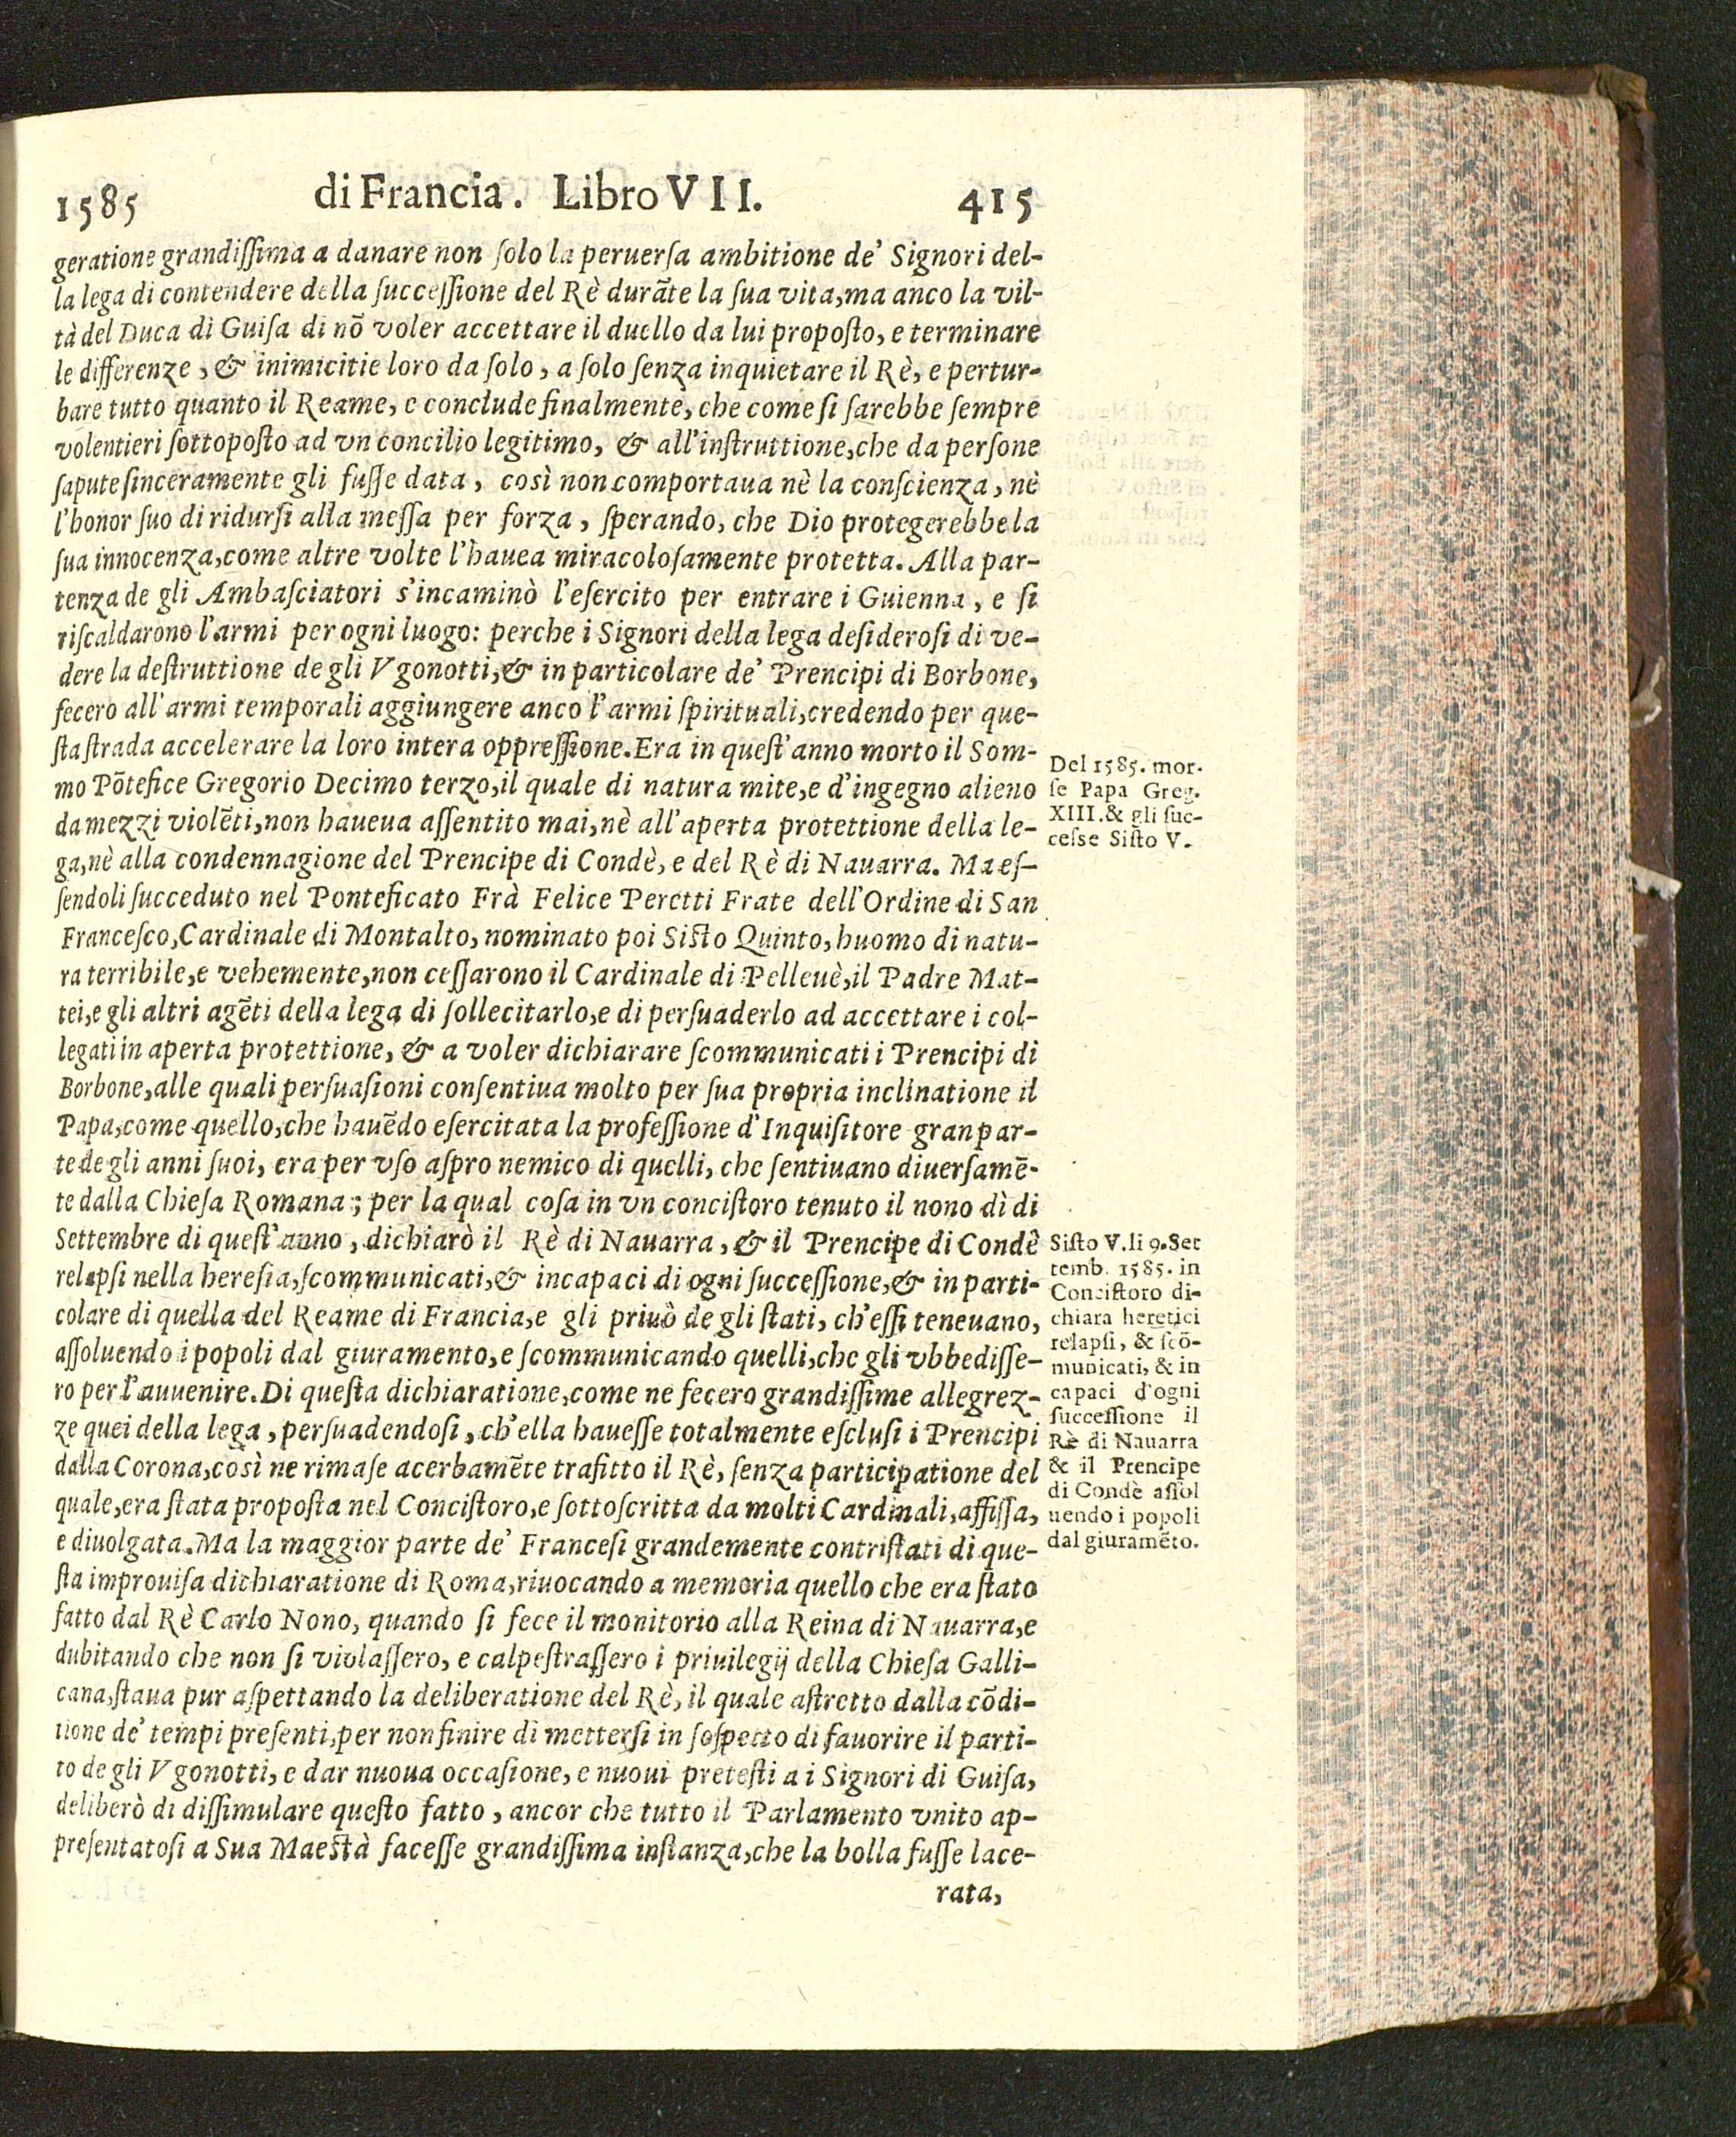 1585 di Francia. Libro VII. 415
geratione grandiſſima a danare non ſolo la peruerſa ambitione de' Signori del-
la lega di contendere della ſucceſſione del Rè durāte la ſua vita,ma anco la vil-
tà del Duca di Guiſa di nõ voler accettare il duello da lui propoſto, e terminare
le differenze, & inimicitie loro da ſolo, a ſolo ſenza inquietare il Rè, e pertur-
bare tutto quanto il Reame, e conclude finalmente, che come ſi ſarebbe ſempre
volentieri ſottopoſto ad vn concilio legitimo, & all'inſtruttione,che da perſone
ſapute ſinceramente gli fuſſe data, così non comportaua nè la conſcienza, nè
l'honor ſuo di ridurſi alla meſſa per forza, ſperando, che Dio protegerebbe la
ſua innocenza,come altre volte l'hauea miracoloſamente protetta. Alla par-
tenza de gli Ambaſciatori s'incaminò l'eſercito per entrare i Guienna, e ſi
riſcaldarono l'armi per ogni luogo: perche i Signori della lega deſideroſi di ve-
dere la deſtruttione de gli Vgonotti,& in particolare de' Prencipi di Borbone,
fecero all'armi temporali aggiungere anco l'armi ſpirituali,credendo per que-
ſta ſtrada accelerare la loro intera oppreſſione.Era in queſt'anno morto il Som-
mo Põtefice Gregorio Decimo terzo,il quale di natura mite,e d'ingegno alieno
da mezzi violẽti,non haueua aſſentito mai,nè all'aperta protettione della le-
ga,nè alla condennagione del Prencipe di Condè, e del Rè di Nauarra. Ma eſ-
ſendoli ſucceduto nel Ponteficato Frà Felice Peretti Frate dell'Ordine di San
Franceſco,Cardinale di Montalto, nominato poi Siſto Quinto, huomo di natu-
ra terribile,e vehemente,non ceſſarono il Cardinale di Pelleuè,il Padre Mat-
tei,e gli altri agẽti della lega di ſollecitarlo,e di perſuaderlo ad accettare i col-
legati in aperta protettione, & a voler dichiarare ſcommunicati i Prencipi di
Borbone,alle quali perſuaſioni conſentiua molto per ſua propria inclinatione il
Papa,come quello,che hauẽdo eſercitata la profeſſione d'Inquiſitore gran par-
te de gli anni ſuoi, era per vſo aſpro nemico di quelli, che ſentiuano diuerſamẽ-
te dalla Chieſa Romana; per la qual coſa in vn conciſtoro tenuto il nono dì di
Settembre di queſt'anno, dichiarò il Rè di Nauarra, & il Prencipe di Condè
relapſi nella hereſia,ſcommunicati,& incapaci di ogni ſucceſſione,& in parti-
colare di quella del Reame di Francia,e gli priuò de gli ſtati, ch'eſſi teneuano,
aſſoluendo i popoli dal giuramento,e ſcommunicando quelli,che gli vbbediſſe-
ro per l'auuenire.Di queſta dichiaratione,come ne fecero grandiſſime allegrez-
ze quei della lega, perſuadendoſi, ch'ella haueſſe totalmente eſcluſi i Prencipi
dalla Corona,così ne rimaſe acerbamẽte trafitto il Rè, ſenza participatione del
quale,era ſtata propoſta nel Conciſtoro,e ſottoſcritta da molti Cardinali,affiſſa,
e diuolgata.Ma la maggior parte de' Franceſi grandemente contriſtati di que-
ſta improuiſa dichiaratione di Roma,riuocando a memoria quello che era ſtato
fatto dal Rè Carlo Nono, quando ſi fece il monitorio alla Reina di Nauarra,e
dubitando che non ſi violaſſero, e calpeſtraſſero i priuilegij della Chieſa Galli-
cana,ſtaua pur aſpettando la deliberatione del Rè, il quale aſtretto dalla cõdi-
tione de' tempi preſenti,per non finire di metterſi in ſoſpetto di fauorire il parti-
to de gli Vgonotti, e dar nuoua occaſione, e nuoui preteſti a i Signori di Guiſa,
deliberò di diſſimulare queſto fatto, ancor che tutto il Parlamento vnito ap-
preſentatoſi a Sua Maeſtà faceſſe grandiſſima inſtanza,che la bolla fuſſe lace-
rata,
Del 1585. mor-
ſe Papa Greg.
XIII.& gli ſuc-
ceſse Siſto V.
Siſto V.li 9.Set
temb. 1585. in
Conciſtoro di-
chiara heretici
relapſi, & ſcõ-
municati, & in
capaci d'ogni
ſucceſſione il
Rè di Nauarra
& il Prencipe
di Condè aſſol
uendo i popoli
dal giuramẽto.